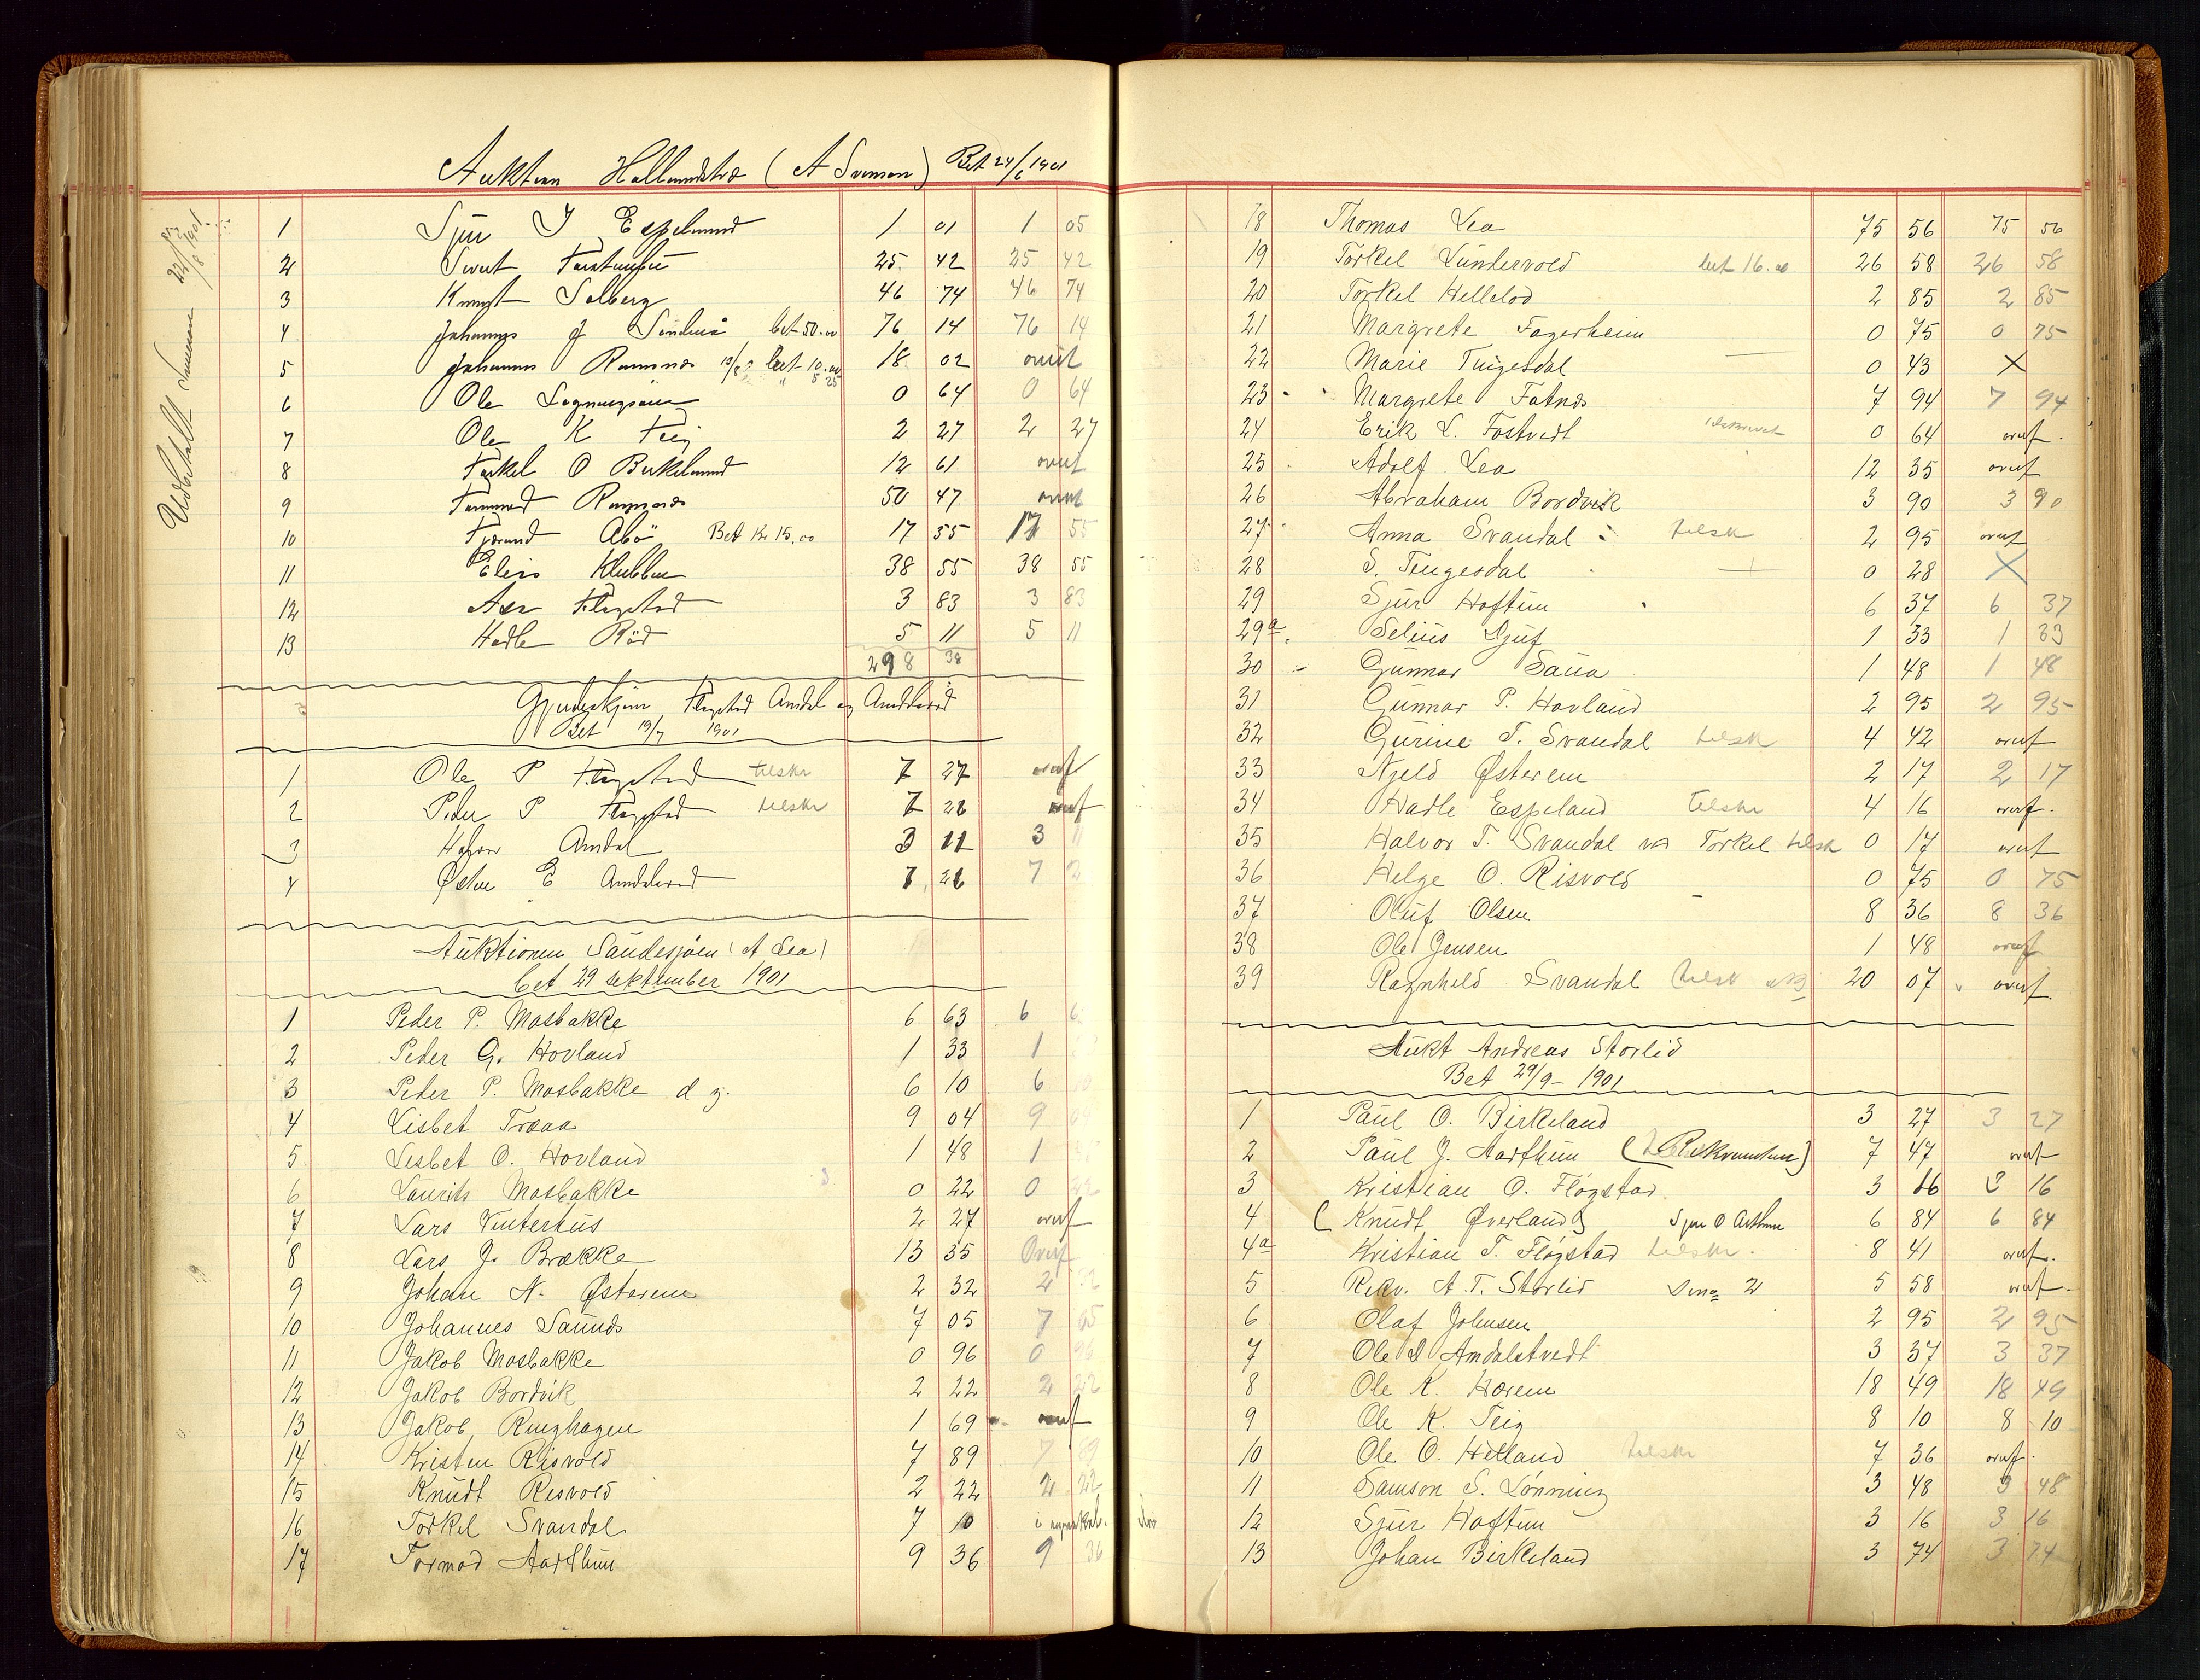 Auktion Hallandstvd (A Svensen) Bet 24/6 1901
Udbetalt Svensen 22/8 1901
1 Sjur I Espeland 1 01 1 05
2 Sivert 25 42 25 42
3 Knut Solberg 46 74 46 74
4 Johannes J bet 50.00 76 14 76 14
5 Johannes Ramsnes bet 10.00 18 02 overf
5 25
6 Ole 0 64 0 64
7 Ole K Teig 2 27 2 27
8 Torkel O Birkeland 12 61 overf
9 Tormod Ramsnes 50 47 overf
10 Abö Bet Kr 15.00 17 55 17 55
11 Elias Klubben 38 55 38 55
12 Asr Fløgstad 3 83 3 83
13 Hadle Röd 5 11 5 11
298 38
Gjerdeskjøn Fløgstad Amdal og
Bet 19/7 1901
1 Ole P Fløgstad tilskr 7 27 overf
2 Peder P Fløgstad tilskr 7 28 overf
3 Amdal 3 11 3 11
4 Østen E 7 28 7 2
Auktionen Saudesjøen (A Lea)
bet 29 september 1901
1 Peder P. Mosbakke 6 63 6
2 Peder G. Hovland 1 33 1
3 Peder P. Mosbakke d y. 6 10 6 10
4 Lisbet Traaa 9 04 9 04
5 Lisbet O. Hovland 1 48 1
6 Laurits Mosbakke 0 22 0 22
7 Lars Vinterhus 2 27 overf
8 Lars J. Brække 13 35 Overf
9 Johan N. Østerem 2 32 2 32
10 Johannes Saunds 7 05 7 05
11 Jakob Mosbakke 0 96 0 96
12 Jakob Bordvik 2 22 2 22
13 Jakob Ringhagen 1 69 overf
14 Kristen Risvold 7 89 7 89
15 Knudt Risvold 2 22 2 22
16 Torkel Svandal 7 10
17 Tormod Aarthun 9 36 9 36
18 Thomas Lea 75 56 75 56
19 Torkel Lundervold bet 16.00 26 58 26 58
20 Torkel Hellelod 2 85 2 85
21 Margrete Fagerheim 0 75 0 75
22 Marie Tengesdal 0 43 X
23 Margrete Fatnes 7 94 7 94
24 Erik L. Fostvedt tilskrevet 0 64 overf.
25 Adolf Lea 12 35 overf
26 Abraham Bordvik 3 90 3 90
27 Anna Svandal tilsk 2 95 overf
28 S. Tengesdal 0 28 X
29 Sjur Hoftun 6 37 6 37
29a Selius Djuf 1 33 1 33
30 Gunnar Saua 1 48 1 48
31 Gunnar P. Hovland 2 95 2 95
32 Gurine T. Svandal tilsk 4 42 overf
33 Njeld Østerem 2 17 2 17
34 Hadle Espeland tilskr 4 16 overf.
35 Halvor T. Svandal v/ Torkel tilsk 0 17 overf
36 Helge O. Risvold 0 75 0 75
37 Oluf Olsen 8 36 8 36
38 Ole Jensen 1 48 overf
39 Ragnhild Svandal tilsk 20 07 overf.
Aukt Andreas Storlid
Bet 29/9 - 1901
1 Paul O. Birkeland 3 27 3 27
2 Paul J. Aarthun 7 47 overf
3 Kristian O. Fløgstad 3 16 3 16
4 (Knudt Øverland) Sjur O Arthun 6 84 6 84
4a Kristian T. Fløgstad tilskr. 8 41 overf.
5 Rekv. A. T. Storlid 5 58 overf.
6 Olaf Johnsen 2 95 2 95
7 Ole S Amdalstvedt 3 37 3 37
8 Ole K. Hærem 18 49 18 49
9 Ole K. Teig 8 10 8 10
10 Ole O. Helland tilskr 7 36 overf.
11 Samson S. Lønning 3 48 3 48
12 Sjur Hoftun 3 16 3 16
13 Johan Birkeland 3 74 3 74